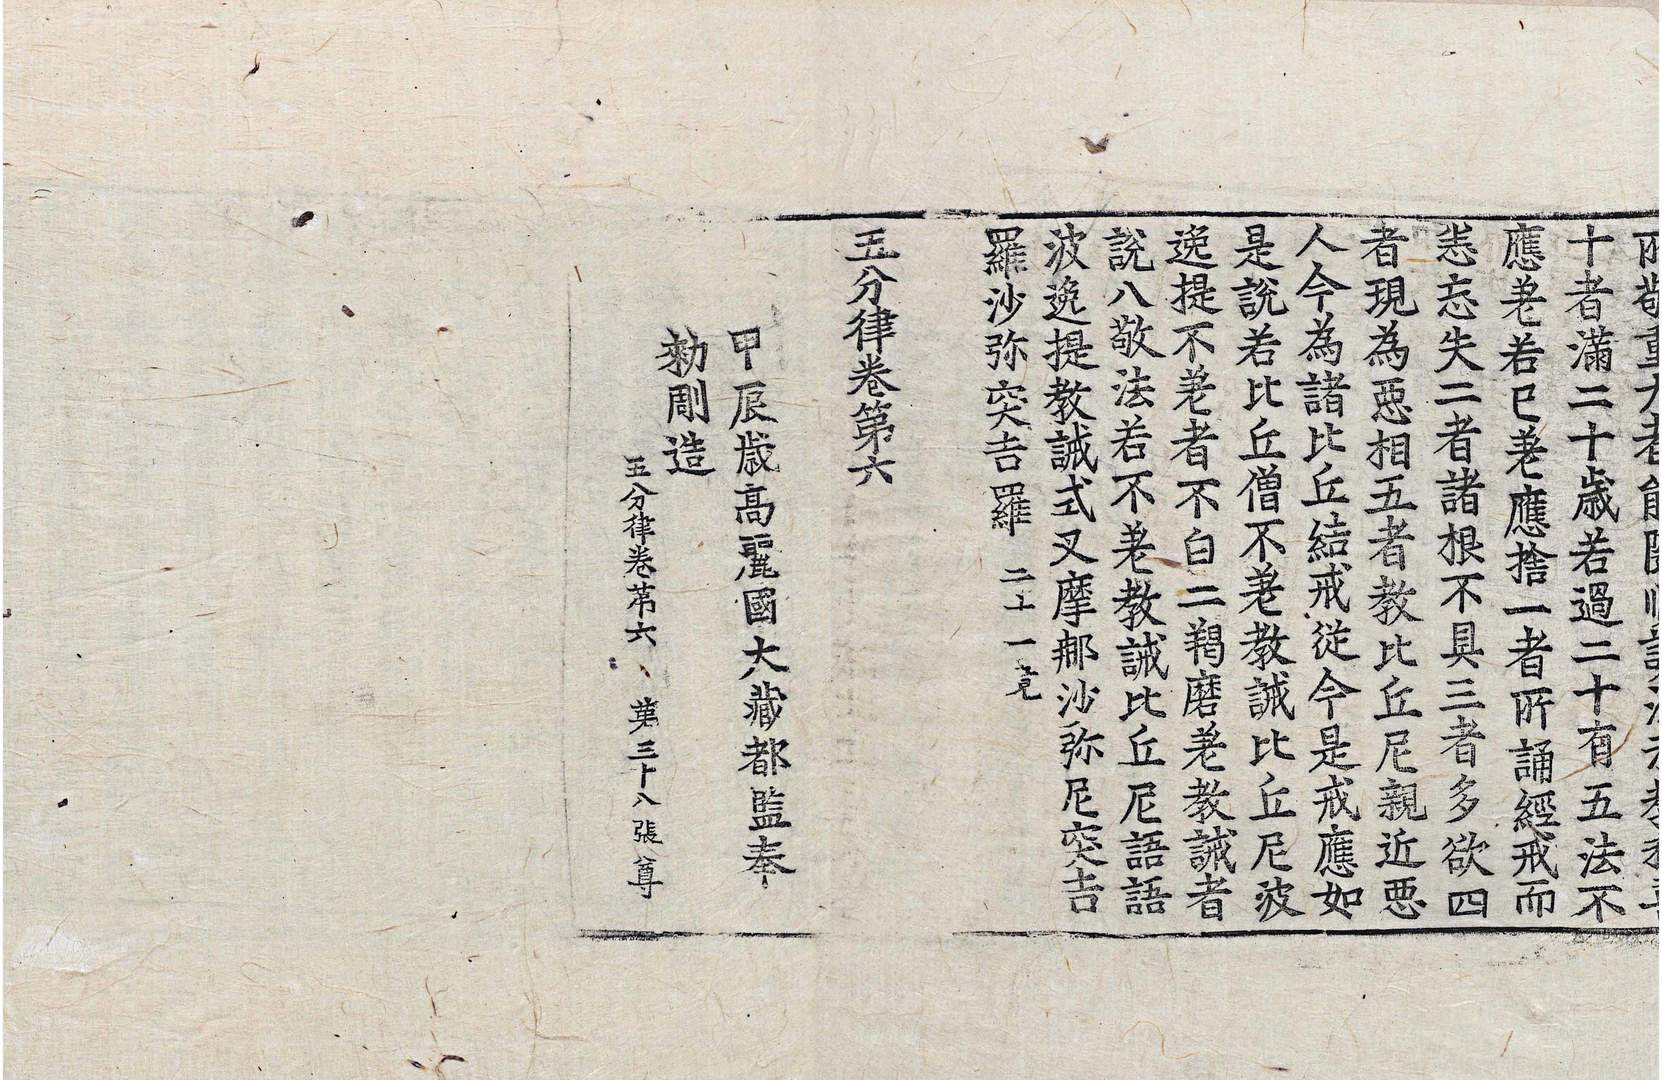 所敬重九者能隨順說法示教利喜
十者滿二十歳若過二十有五法不
應差若已差應捨一者所誦經戒而
悉忘失二者諸根不具三者多欲四
者現為惡相五者教比丘尼親近惡
人今為諸比丘結戒從今是戒應如
是說若比丘僧不差教誡比丘尼波
逸提不差者不白二羯磨差教誡者
說八敬法若不差教誡比丘尼語語
波逸提教誡式叉摩那沙弥尼突吉
羅沙弥突吉羅 二十一竟
五分律卷第六
甲辰歳高麗國大藏都監奉
勑彫造
五分律卷第六 第三十八張 尊